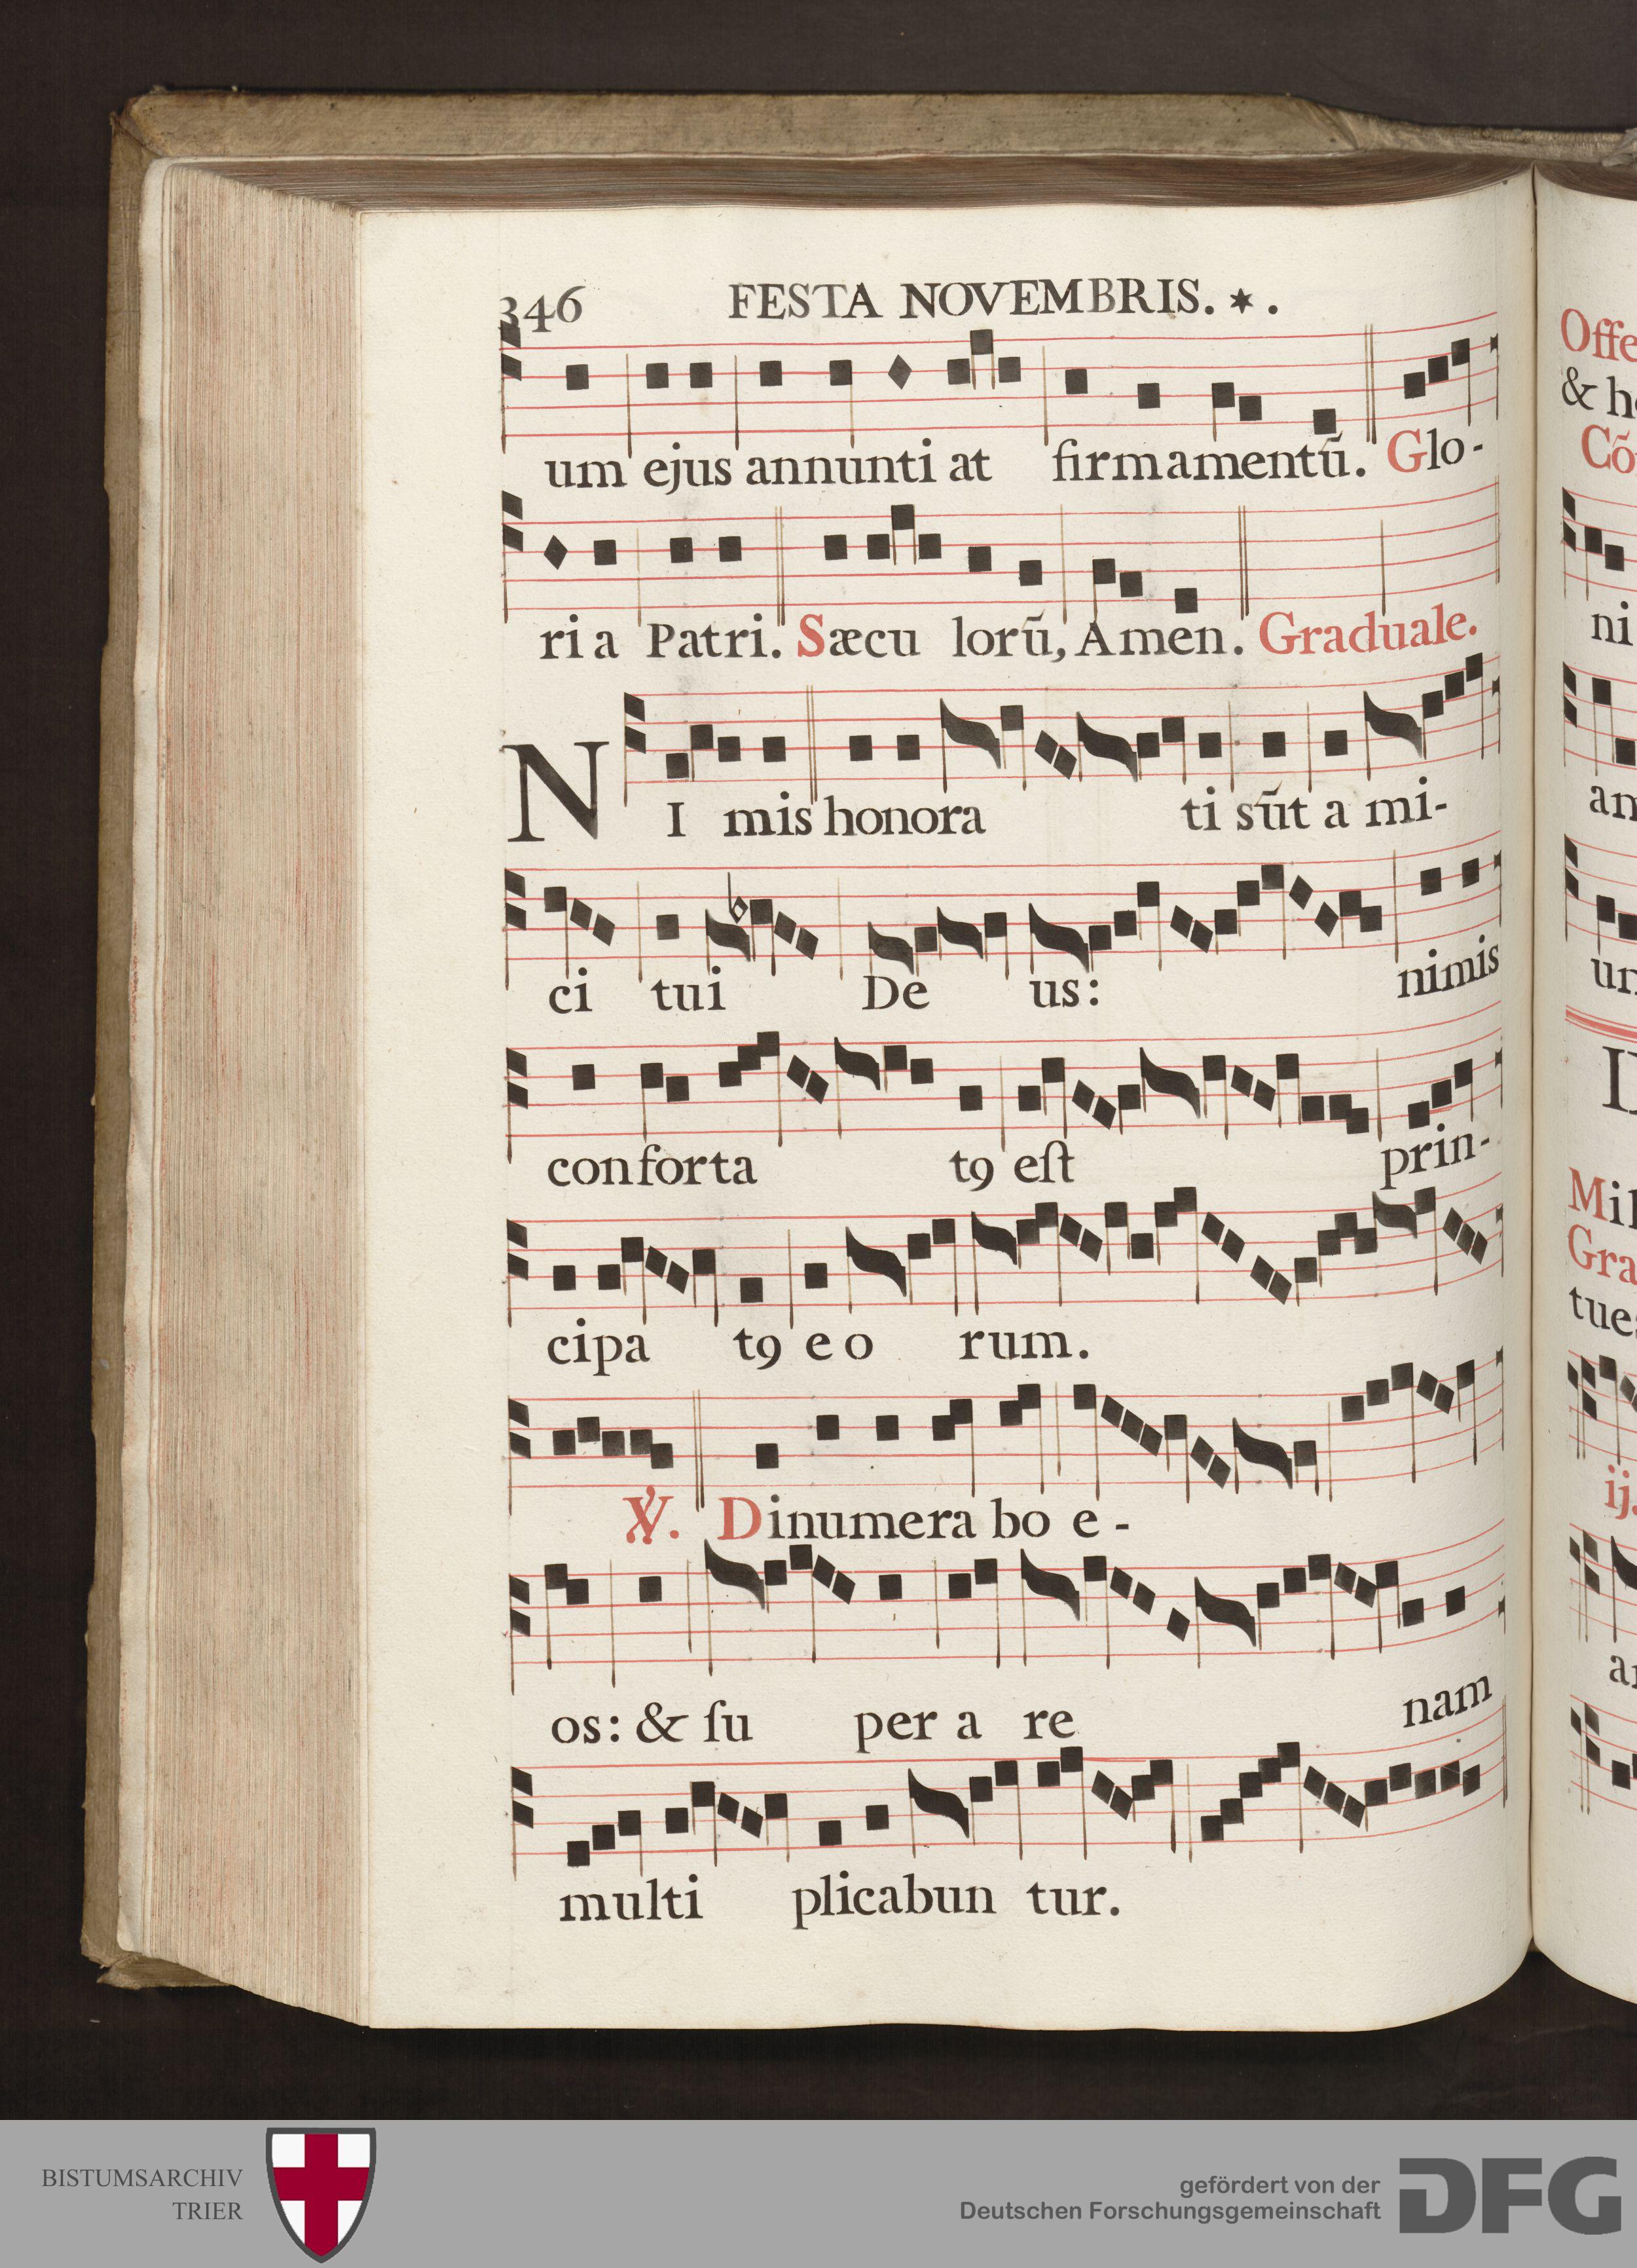 346 FESTA NOVEMBRIS. ✶.
um ejus annunti at firmamentũ. Glo-
ri a Patri. Sæcu lorũ, Amen. Graduale.
NI mis honora ti sũt a mi-
ci tui De us: nimis
conforta tꝯ eſt prin-
cipa tꝯ e o rum.
℣. Dinumera bo e-
os: & ſu per a re nam
multi plicabun tur.
Offe
& h
Cõ
ni
an
un
Mil
Gra
tue
ij.
BISTUMSARCHIV
TRIER
gefördert von der
Deutschen Forschungsgemeinschaft
DFG